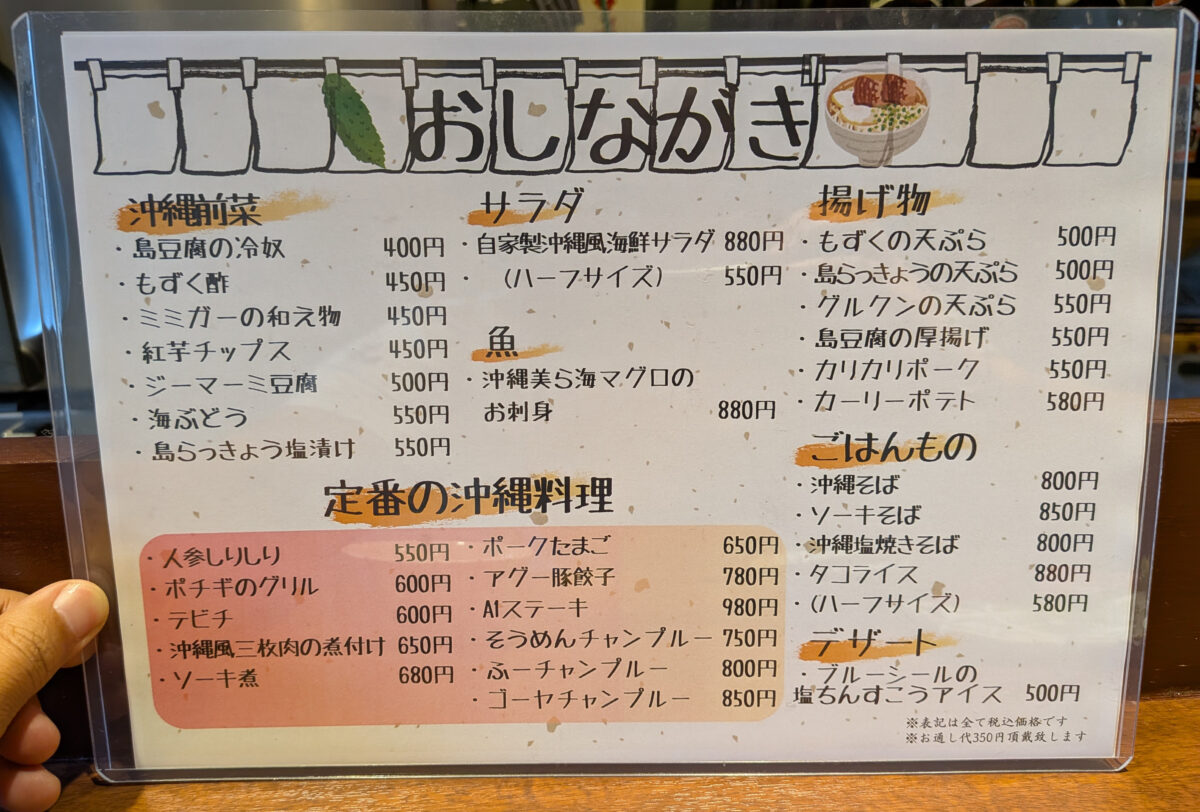 おしながき
沖縄前菜
・島豆腐の冷奴 400円
・もずく酢 450円
・ミミガーの和え物 450円
・紅芋チップス 450円
・ジーマーミ豆腐 500円
・海ぶどう 550円
・島らっきょう塩漬け 550円
サラダ
・自家製沖縄風海鮮サラダ 880円
・(ハーフサイズ) 550円
魚
・沖縄美ら海マグロの
お刺身 880円
揚げ物
・もずくの天ぷら 500円
・島らっきょうの天ぷら 500円
・グルクンの天ぷら 550円
・島豆腐の厚揚げ 550円
・カリカリポーク 550円
・カーリーポテト 580円
定番の沖縄料理
・人参しりしり 550円
・ポチギのグリル 600円
・テビチ 600円
・沖縄風三枚肉の煮付け 650円
・ソーキ煮 680円
・ポークたまご 650円
・アグー豚餃子 780円
・A1ステーキ 980円
・そうめんチャンプルー 750円
・ふーチャンプルー 800円
・ゴーヤチャンプルー 850円
ごはんもの
・沖縄そば 800円
・ソーキそば 850円
・沖縄塩焼きそば 800円
・タコライス 880円
・(ハーフサイズ) 580円
デザート
・ブルーシールの
塩ちんすこうアイス 500円
※表記は全て税込価格です
※お通し代350円頂戴致します